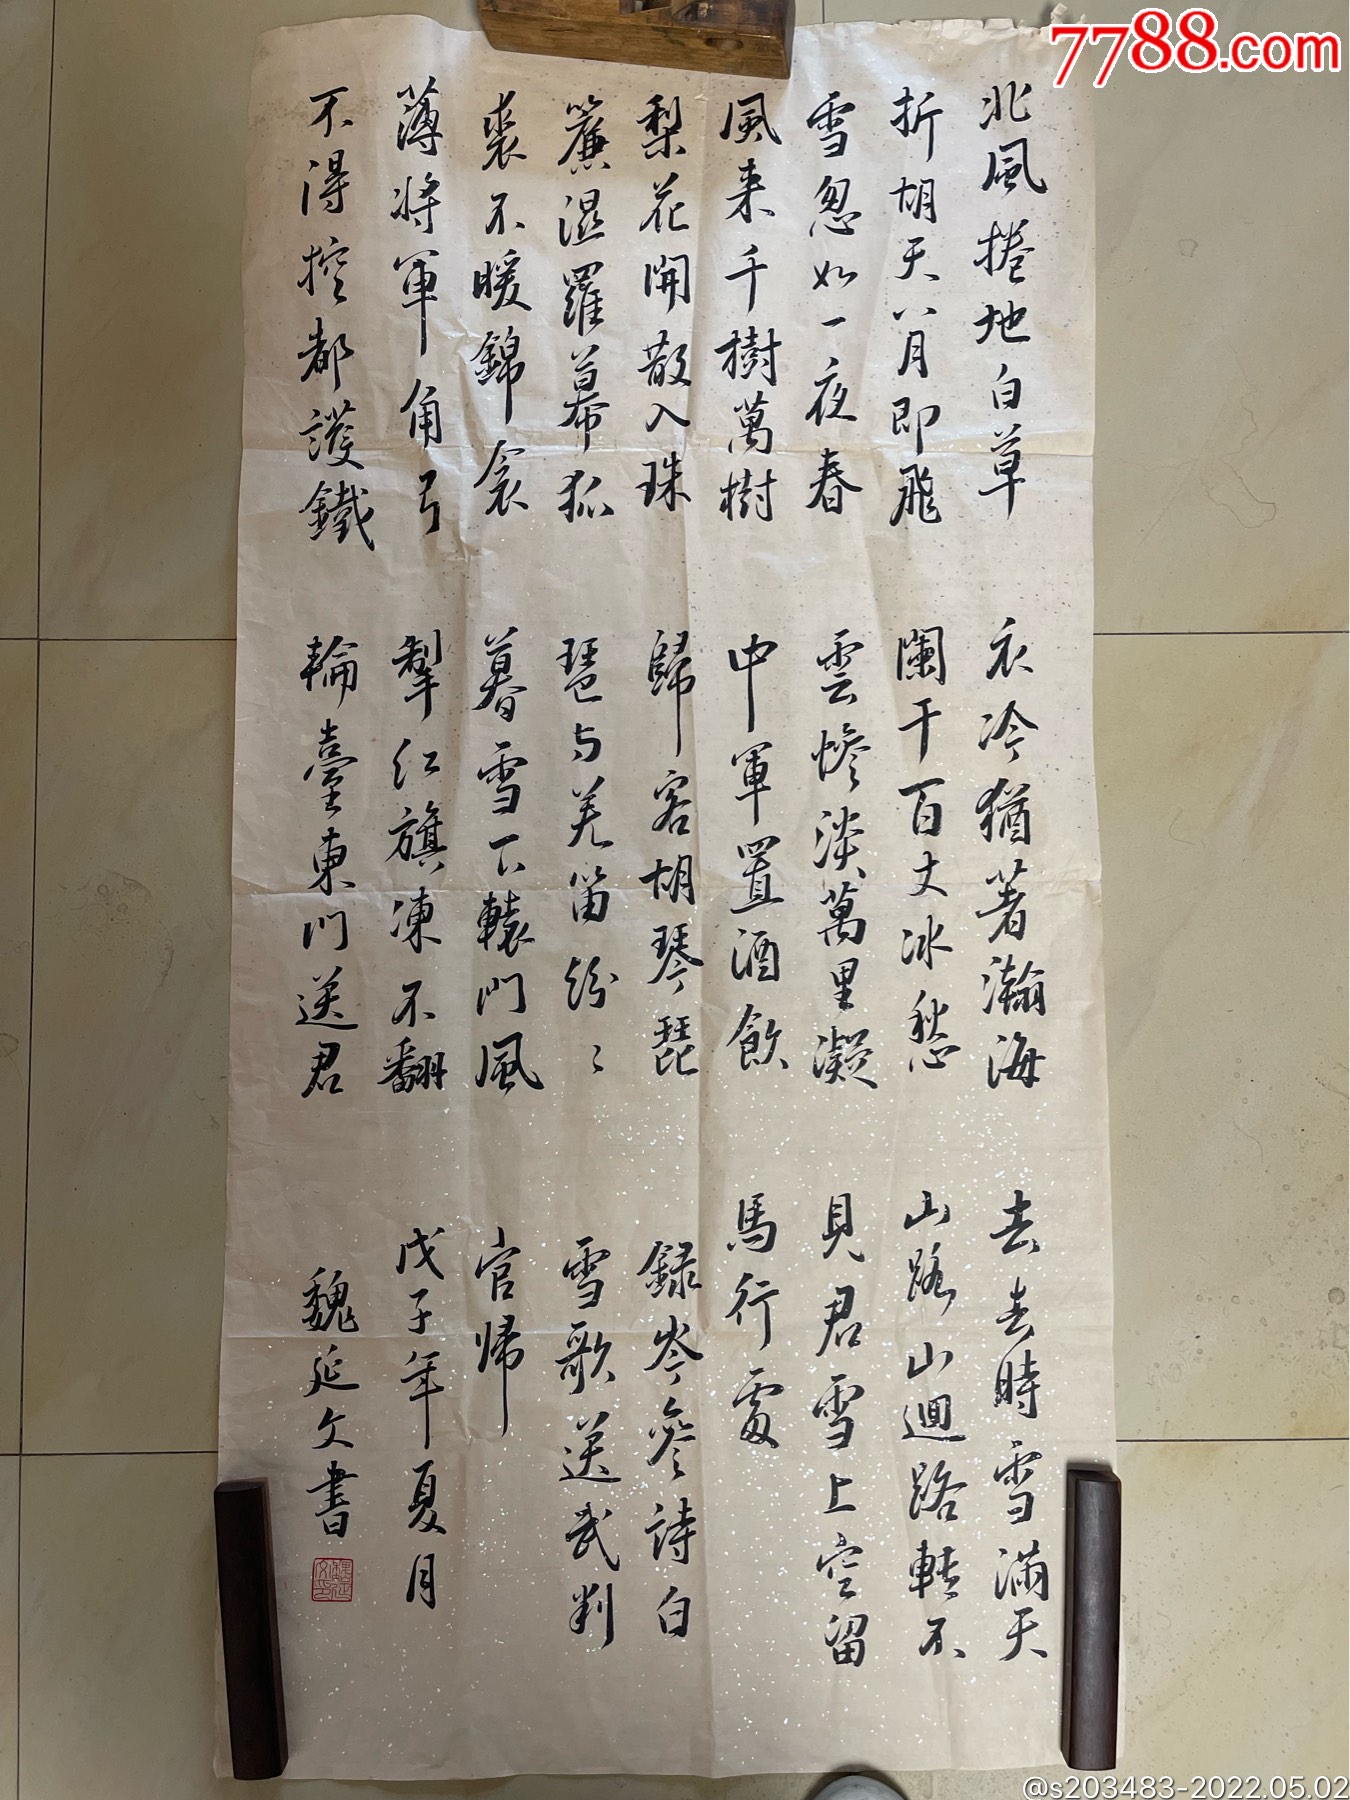 北風捲地白草
折胡天八月即飛
雪忽如一夜春
風来千樹萬樹
梨花開散入珠
簾濕羅幕狐
裘不暖錦衾
薄将軍角弓
不得控都護鐵
衣冷猶著瀚海
闌干百丈冰愁
雲慘淡萬里凝
中軍置酒飲
歸客胡琴琵
琶与羌笛紛〻
暮雪下轅門風
掣红旗凍不翻
輪臺東門送君
去去時雪滿天
山路山迴路轉不
見君雪上空留
馬行處
録岑參詩白
雪歌送武判
官帰
戊子年夏月
魏延文書
7788.com
@s203483-2022.05.02